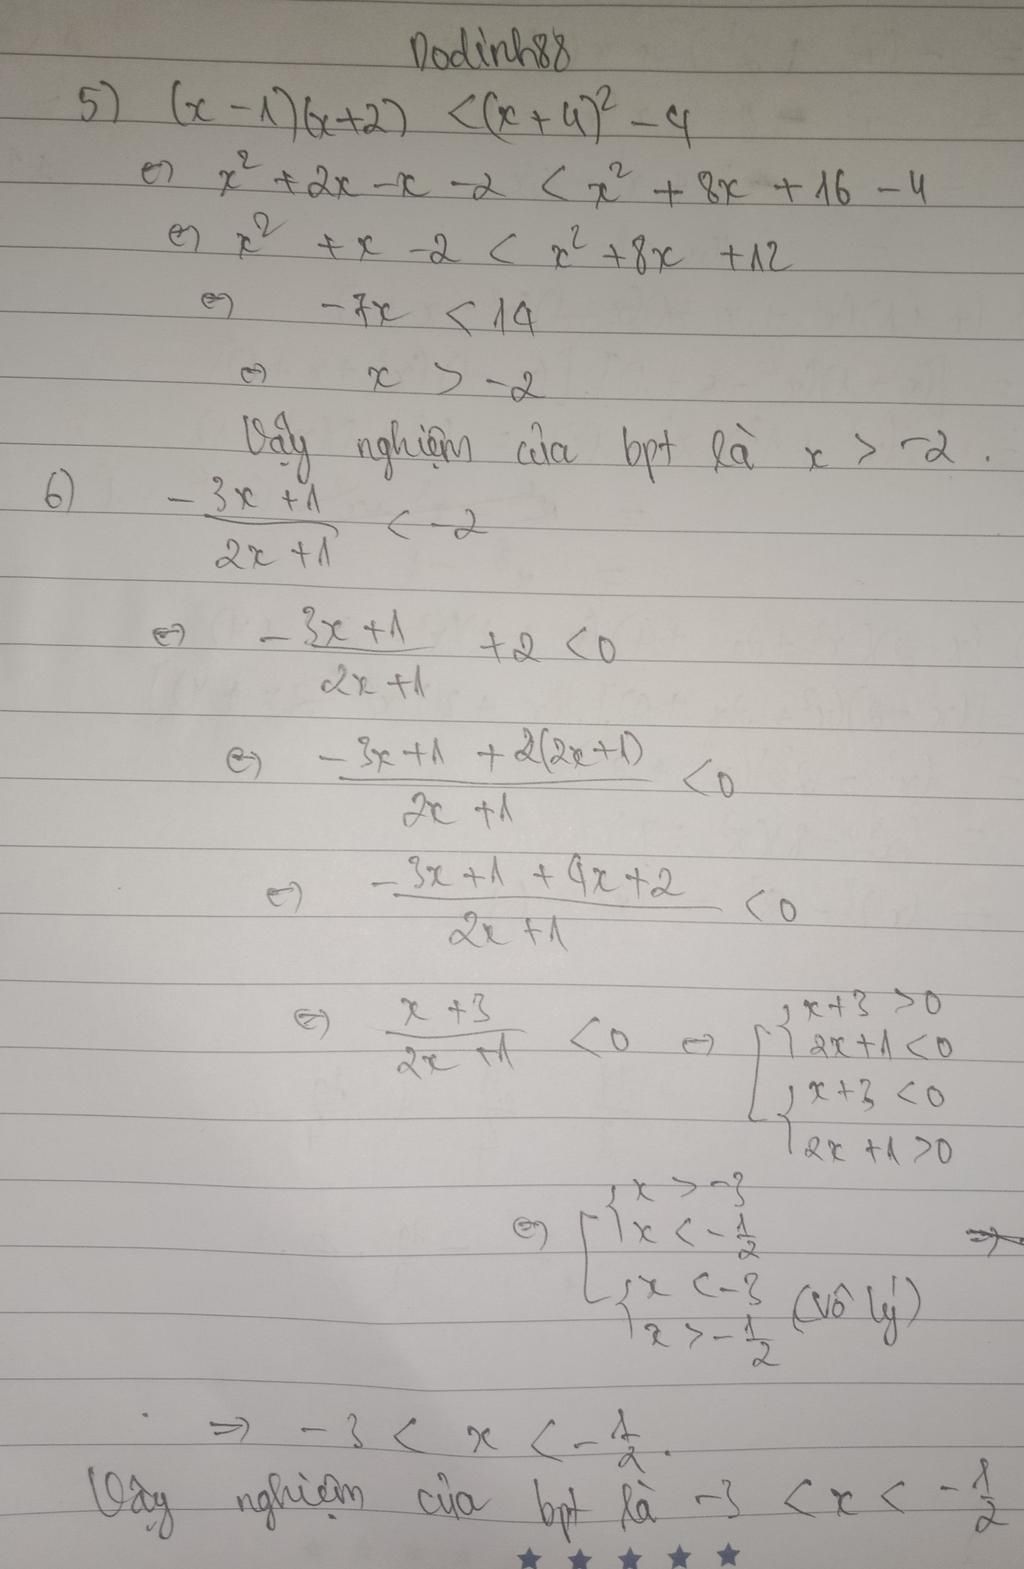 Dodinh88
5) (x - 1)(x+2) < (x+4)² - 4
⇔ x² + 2x - x - 2 < x² + 8x + 16 - 4
⇔ x² + x - 2 < x² + 8x + 12
⇔ -7x < 14
⇔ x > -2
Vậy nghiệm của bpt là x > -2.
6) (-3x + 1)/(2x + 1) < -2
⇔ (-3x + 1)/(2x + 1) + 2 < 0
⇔ (-3x + 1 + 2(2x + 1))/(2x + 1) < 0
⇔ (-3x + 1 + 4x + 2)/(2x + 1) < 0
⇔ (x + 3)/(2x + 1) < 0 ⇔ [ { x + 3 > 0
2x + 1 < 0
{ x + 3 < 0
2x + 1 > 0
⇔ [ { x > -3
x < -1/2 ⇒
{ x < -3 (vô lý)
x > -1/2
⇒ -3 < x < -1/2.
Vậy nghiệm của bpt là -3 < x < -1/2